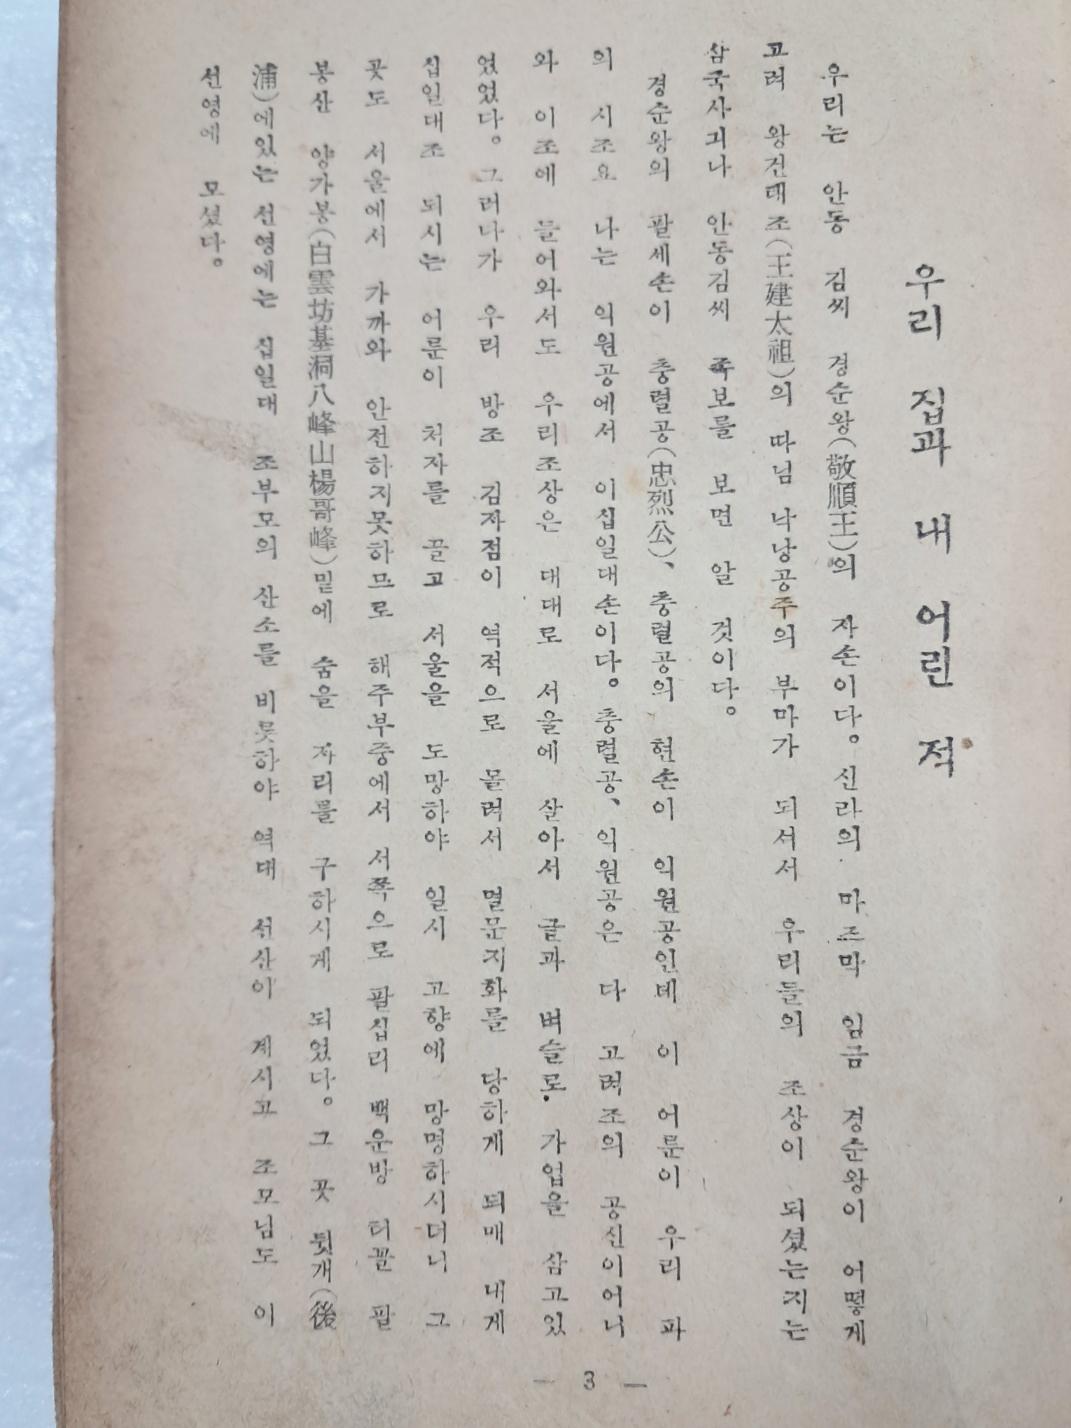 우리 집과 내 어린 적
우리는 안동 김씨 경순왕(敬順王)의 자손이다。 신라의 마즈막 임금 경순왕이 어떻게
고려 왕건태조(王建太祖)의 따님 낙낭공주의 부마가 되셔서 우리들의 조상이 되셨는지는
삼국사괴나 안동김씨 족보를 보면 알 것이다。
경순왕의 팔세손이 충렬공(忠烈公)、 충렬공의 현손이 익원공인데 이 어룬이 우리 파
의 시조요 나는 익원공에서 이십일대손이다。 충렬공、 익원공은 다 고려조의 공신이어니
와 이조에 들어와서도 우리조상은 대대로 서울에 살아서 글과 벼슬로 가업을 삼고있
었었다。 그러나가 우리 방조 김자점이 역적으로 몰려서 멸문지화를 당하게 되매 내게
십일대조 되시는 어룬이 처자를 끌고 서울을 도망하야 일시 고향에 망명하시더니 그
곳도 서울에서 가까와 안전하지못하므로 해주부중에서 서쪽으로 팔십리 백운방 터꼴 팔
봉산 양가봉(白雲坊基洞八峰山楊哥峰)밑에 숨을 자리를 구하시게 되었다。 그 곳 뒷개(後
浦)에있는 선영에는 십일대 조부모의 산소를 비롯하야 역대 선산이 계시고 조모님도 이
선영에 모셨다。
— 3 —